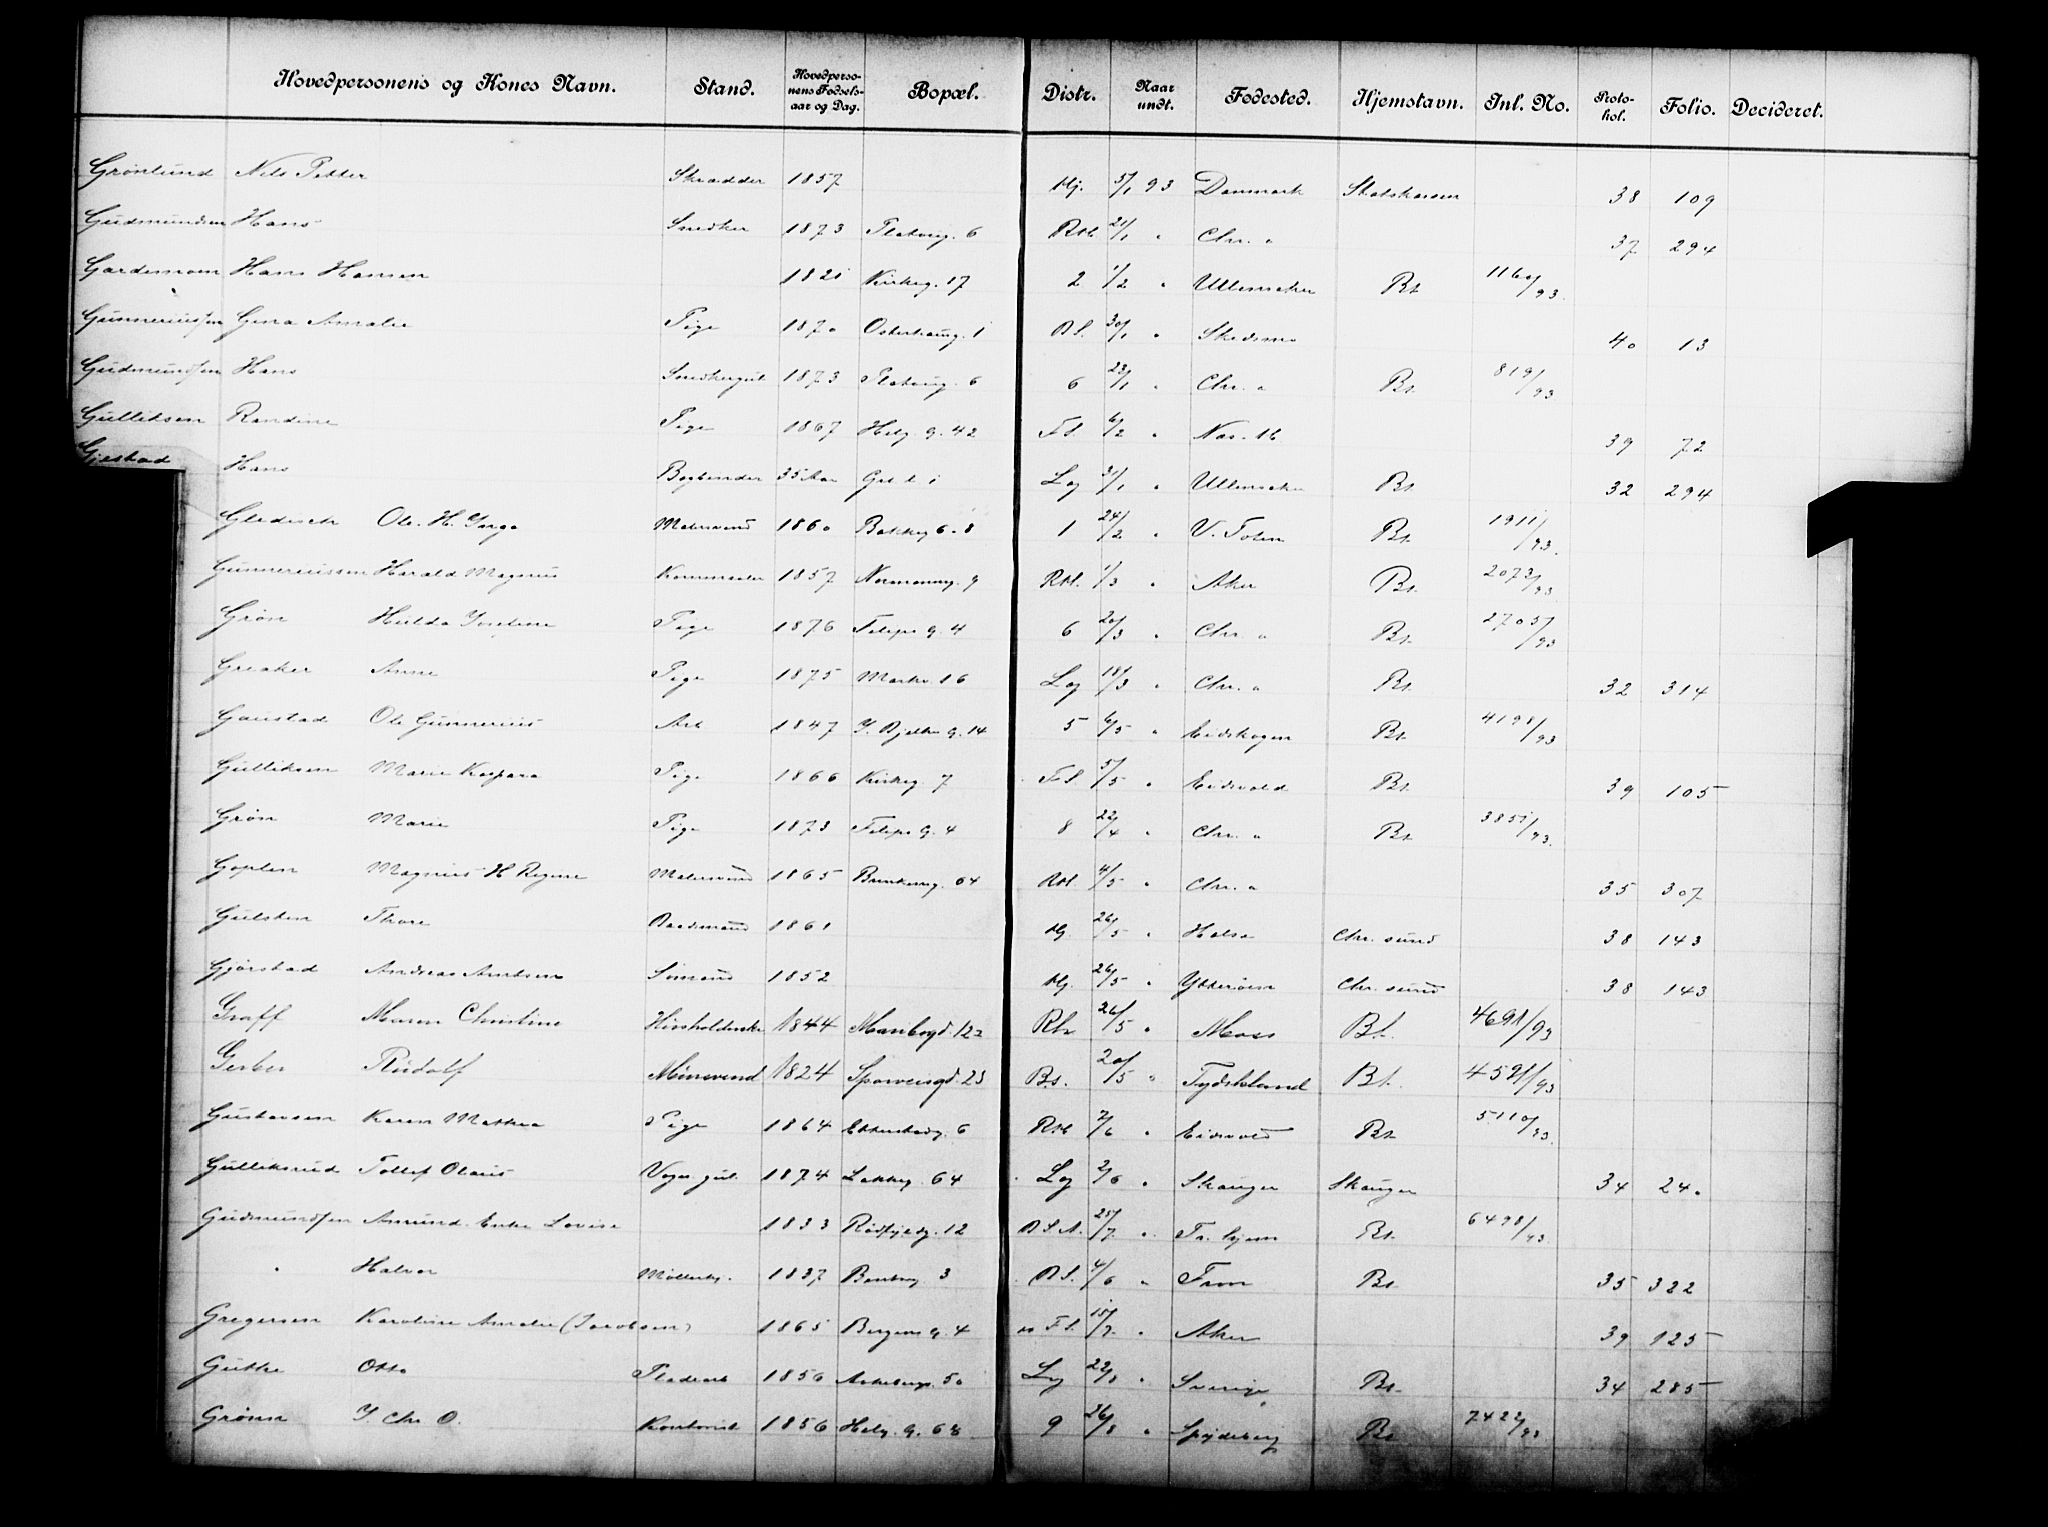 Hovedpersonens og Kones Navn. Stand. Hovedperso-nens Fødsels-aar og Dag. Bopæl. Distr. Naar undt. Fødested. Hjemstavn. Inl. No. Proto-kol. Folio. Decideret.
Grønlund Nils Petter Skrædder 1857 Hj. 5/1 93 Danmark 38 109
Gudmundsen Hans Snedker 1873 6 Rst. 21/1 " Chr. a 37 294
Gardemoen Hans Hansen 1821 Kirkeg. 17 2 1/2 " Ullensaker Bt. 1160/93.
Gunneriussen Gina Amalie Pige 1870 Osterhaug. 1 B.S. 30/1 " Skedsmo 40 13
Gudmundsen Hans Snedkergut 1873 6 6 23/1 " Chr. a Bt. 819/93
Gulliksen Randine Pige 1867 Helg. G. 42 F.S. 6/2 " Nes. 16 39 72
Gjestad Hans Bogbinder 35 Aar Lg 31/1 " Ullensaker Bt. 32 294
Gledisch Ole. H. Malersvend 1860 Bakkeg 6-8 1 24/2 " V. Toten Bt. 1911/93.
Gunneriussen Harald Magnus 1857 9 Rst. 1/3 " Aker Bt. 2073/93
Grøn Hulda Josefine Pige 1876 Filips G. 4 6 20/3 " Chr. a Bt. 2705/93
Greaker Anne Pige 1875 Markv. 16 Lg 18/3 " Chr. a Bt. 32 314
Gaustad Ole Gunnerius Arb 1847 G. 14 5 6/5 " Eidskogen Bt. 4198/93
Gulliksen Marie Kaspara Pige 1866 Kirkeg. 7 F.S. 5/5 " Eidsvold Bt. 39 105
Grøn Marie Pige 1873 Filips G. 4 8 22/4 " Chr. a Bt. 3851/93.
Goplen Magnus H. Malersvend 1865 64 Rst. 4/5 " Chr. a 35 307
Gulsten Thore Baadsmand 1861 Hj. 26/5 " Halsa Chr. sund 38 143
Gjørstad Andreas Arntsen Sømand 1852 Hj. 26/5 " Ytterøen Chr. sund 38 143
Graff Maren Christine Husholderske 1844 122 26/5 " Moss Bt. 4691/93
Gerber Rudolf 1824 Sporveisgd. 23 B.s. 20/5 " Tydskland Bt. 4521/93
Gustavsen Karen Mathea Pige 1864 6 Rst 2/6 " Eidsvold Bt. 5110/93.
Gulliksrud Tollef Olaus 1874 Lakkeg. 64 Lg 2/6 " Skauger Skauger 34 240
Gudmundsen Amund. Enke Lovise 1833 Rødfyldg. 12 B.S.A. 25/7 " Tr. hjem Bt. 6498/93.
" Halvor 1837 3 B.S. 4/6 " Fron Bt. 35 322
Gregersen Karoline Amalie (Jacobsen) 1865 Bergens G. 4 F.S. 15/7 " Aker 39 125
Gutke Otto 1856 Akebergv. 50 Lg 22/8 " Sverige Bt. 34 285
Grønn J. Chr. O. Kontorist 1856 Helg. G. 68 9 26/8 " Spydeberg Bt. 7422/93